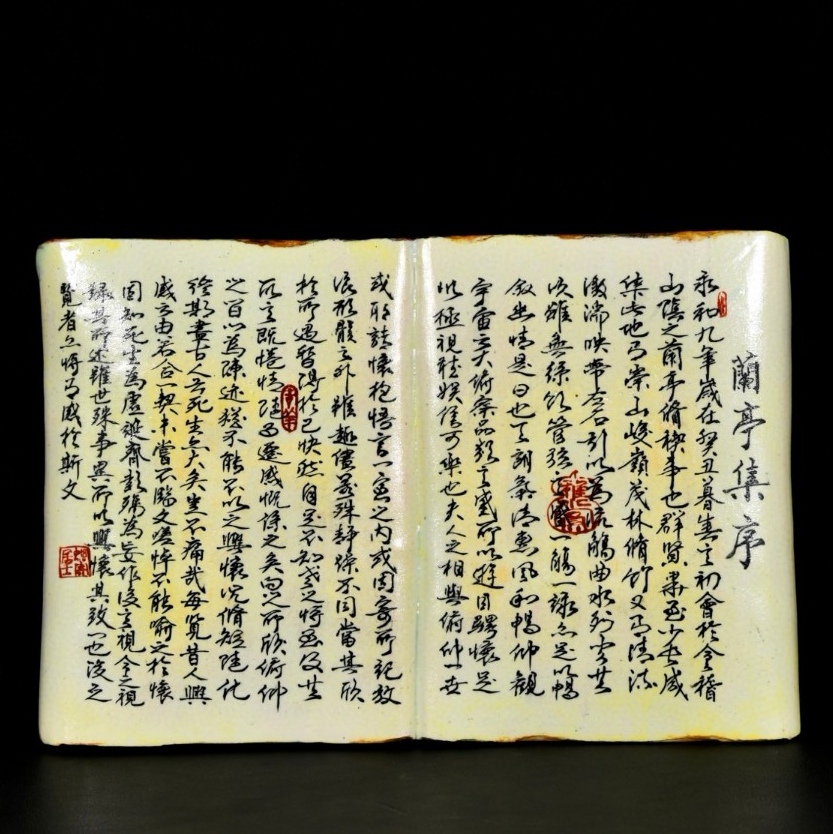 蘭亭集序
永和九年歲在癸丑暮春之初會於會稽
山陰之蘭亭脩稧事也群賢畢至少長咸
集此地有崇山峻嶺茂林脩竹又有清流
激湍映帶左右引以為流觴曲水列坐其
次雖無絲竹管弦之盛一觴一詠亦足以暢
敘幽情是日也天朗氣清惠風和暢仰觀
宇宙之大俯察品類之盛所以遊目騁懷足
以極視聽娛信可樂也夫人之相與俯仰一世
或取諸懷抱悟言一室之內或因寄所託放
浪形骸之外雖趣舍萬殊靜躁不同當其欣
於所遇暫得於己快然自足不知老之將至及其
所之既惓情隨事遷感慨係之矣向之所欣俯仰
之間以為陳迹猶不能不以之興懷況脩短隨化
終期盡古人云死生亦大矣豈不痛哉每覽昔人興
感之由若合一契未嘗不臨文嗟悼不能喻之於懷
固知死生為虛誕齊彭殤為妄作後之視今之視
錄其所述雖世殊事異所以興懷其致一也後之
覽者亦將有感於斯文